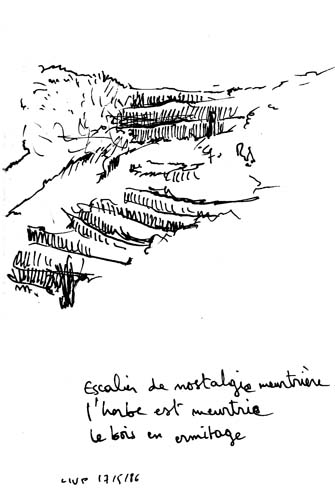 Escalier de nostalgie meurtrière
l'herbe est meurtrie
le bois en ermitage
17/5/86